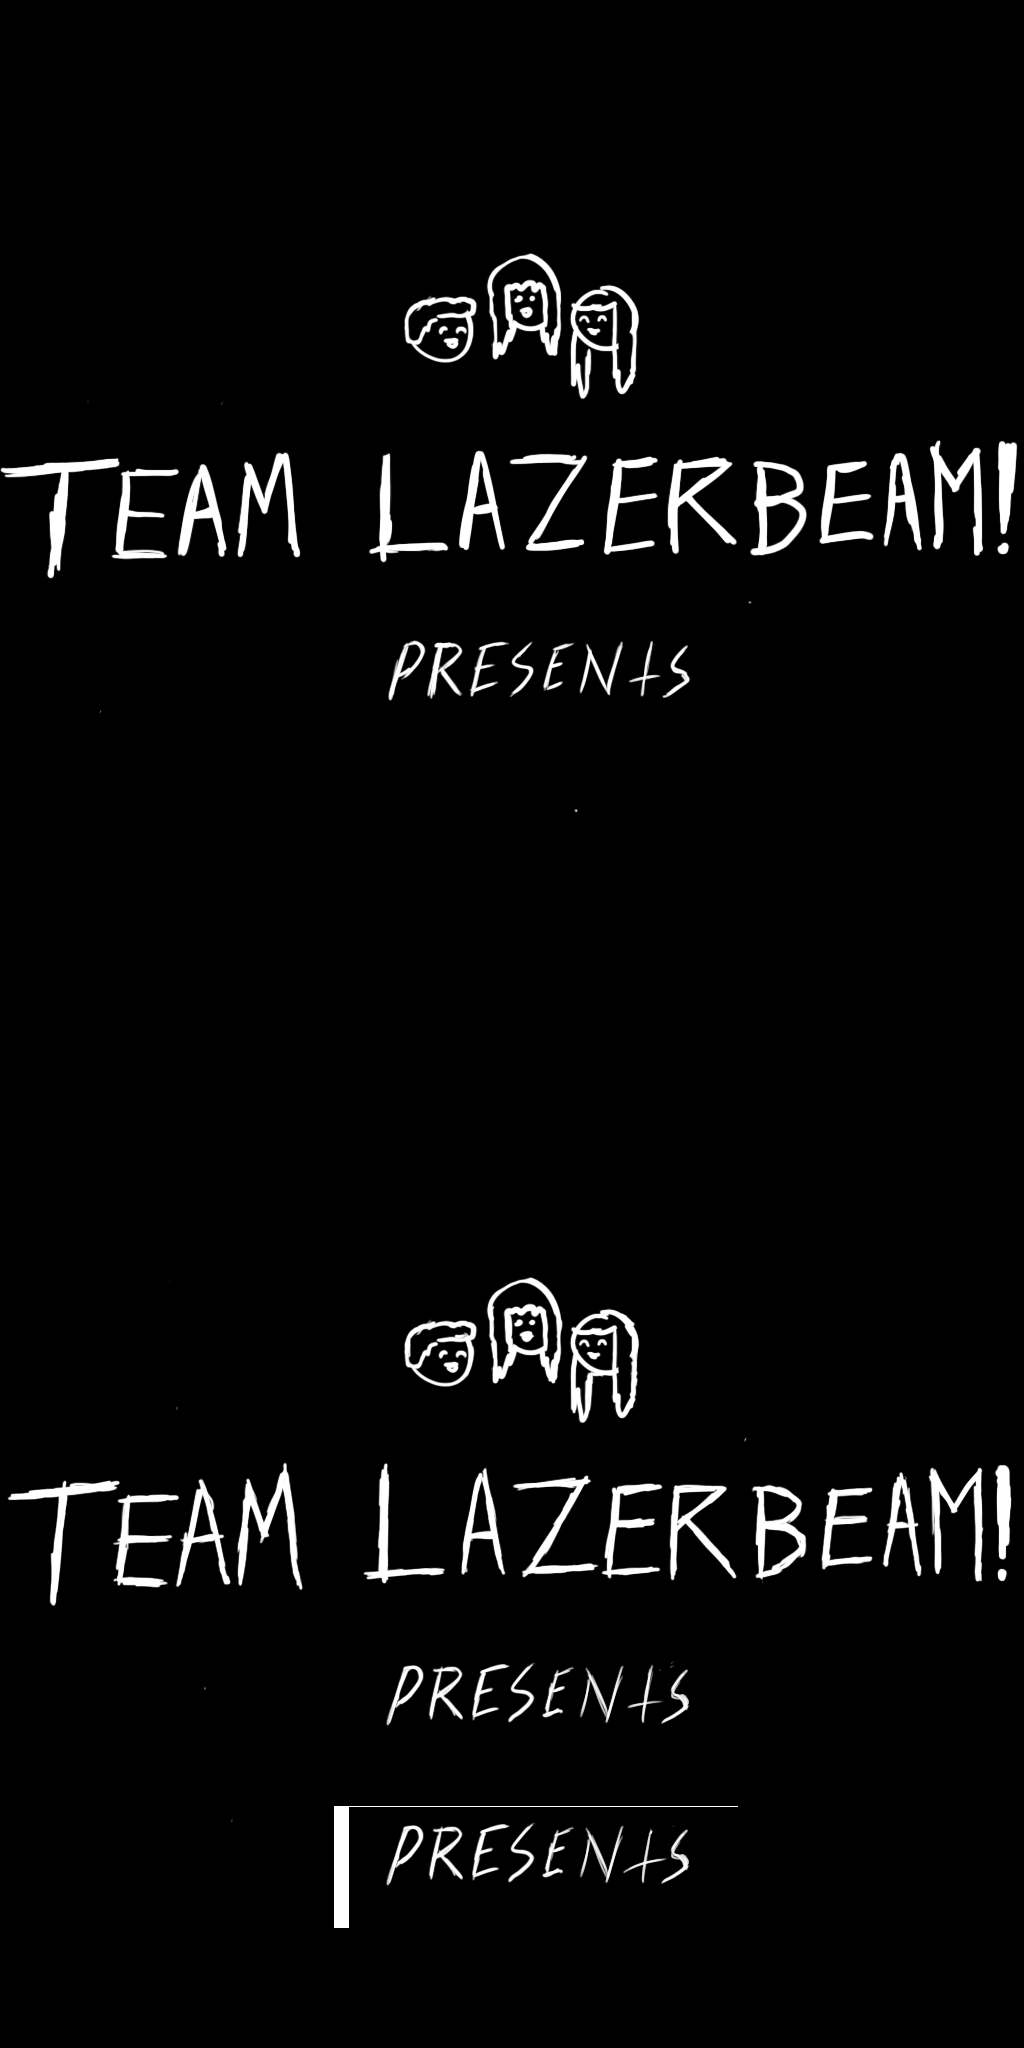 TEAM LAZERBEAM!
PRESENTS
TEAM LAZERBEAM!
PRESENTS
PRESENTS